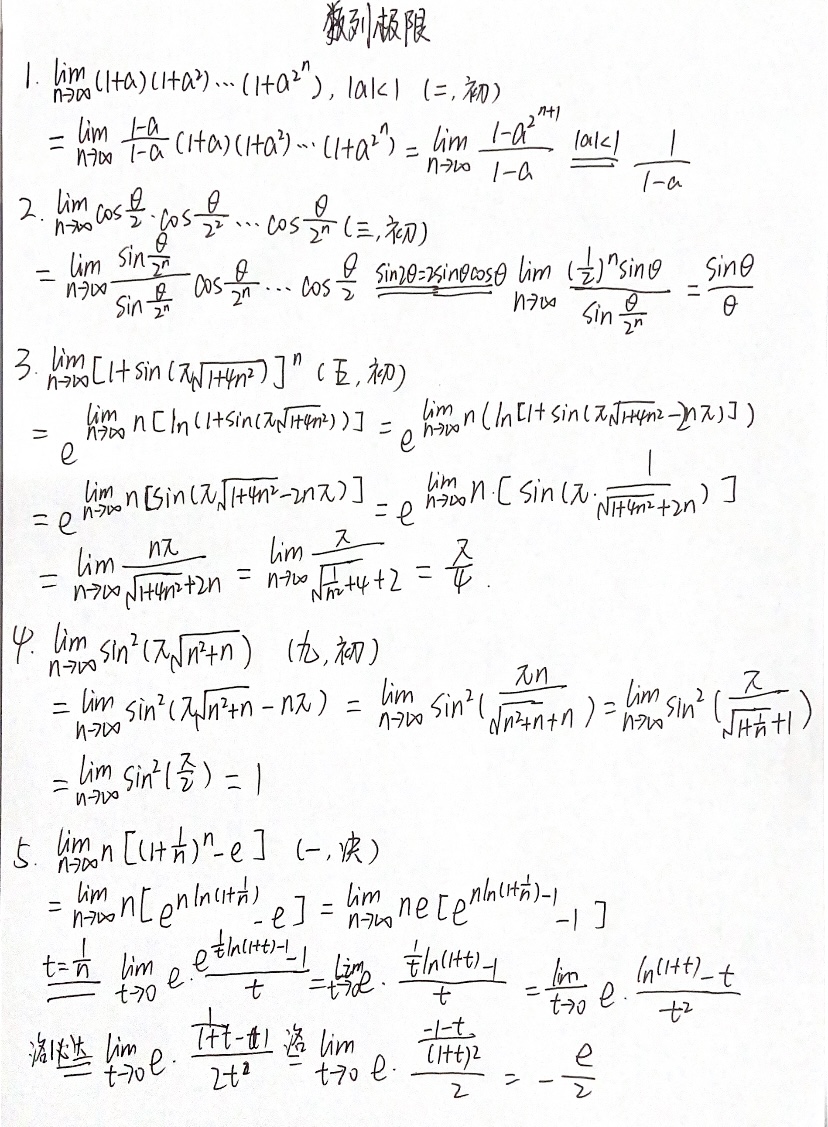 数列极限
1. lim_{n→∞} (1+a)(1+a²)⋯(1+a^{2^n}), |a|<1 (二,初)
= lim_{n→∞} \frac{1-a}{1-a} (1+a)(1+a²)⋯(1+a^{2^n}) = lim_{n→∞} \frac{1-a^{2^{n+1}}}{1-a} \overset{|a|<1}{=} \frac{1}{1-a}
2. lim_{n→∞} cos\frac{θ}{2}·cos\frac{θ}{2²}⋯cos\frac{θ}{2^n} (三,初)
= lim_{n→∞} \frac{sin\frac{θ}{2^n}}{sin\frac{θ}{2^n}} cos\frac{θ}{2^n}⋯cos\frac{θ}{2} \overset{sin2θ=2sinθcosθ}{=} lim_{n→∞} \frac{(\frac{1}{2})^n sinθ}{sin\frac{θ}{2^n}} = \frac{sinθ}{θ}
3. lim_{n→∞} [1+sin(π\sqrt{1+4n²})]^n (五,初)
= e^{lim_{n→∞} n[ln(1+sin(π\sqrt{1+4n²}))]} = e^{lim_{n→∞} n(ln[1+sin(π\sqrt{1+4n²}-2nπ)])}
= e^{lim_{n→∞} n[sin(π\sqrt{1+4n²}-2nπ)]} = e^{lim_{n→∞} n·[sin(π·\frac{1}{\sqrt{1+4n²}+2n})]}
= lim_{n→∞} \frac{nπ}{\sqrt{1+4n²}+2n} = lim_{n→∞} \frac{π}{\sqrt{\frac{1}{n²}+4}+2} = \frac{π}{4}.
4. lim_{n→∞} sin²(π\sqrt{n²+n}) (九,初)
= lim_{n→∞} sin²(π\sqrt{n²+n}-nπ) = lim_{n→∞} sin²(\frac{πn}{\sqrt{n²+n}+n}) = lim_{n→∞} sin²(\frac{π}{\sqrt{1+\frac{1}{n}}+1})
= lim_{n→∞} sin²(\frac{π}{2}) = 1
5. lim_{n→∞} n[(1+\frac{1}{n})^n-e] (一,决)
= lim_{n→∞} n[e^{nln(1+\frac{1}{n})}-e] = lim_{n→∞} ne[e^{nln(1+\frac{1}{n})-1}-1]
\overset{t=\frac{1}{n}}{=} lim_{t→0} e·\frac{e^{\frac{1}{t}ln(1+t)-1}-1}{t} = lim_{t→0} e·\frac{\frac{1}{t}ln(1+t)-1}{t} = lim_{t→0} e·\frac{ln(1+t)-t}{t²}
\overset{洛必达}{=} lim_{t→0} e·\frac{\frac{1}{1+t}-1}{2t} \overset{洛}{=} lim_{t→0} e·\frac{\frac{-1-t}{(1+t)²}}{2} = -\frac{e}{2}